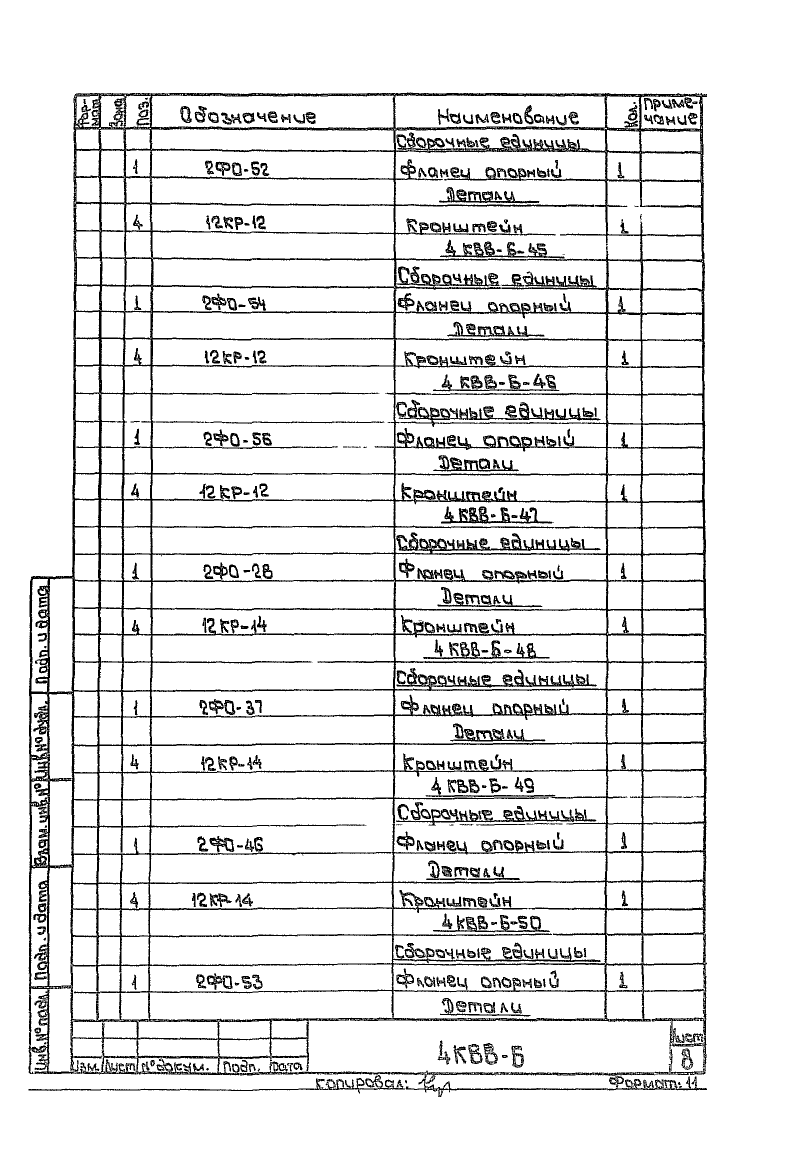 Фор-мат Зона Поз. Обозначение Наименование Кол. Приме-чание
Сборочные единицы
1 2ФО-52 Фланец опорный 1
Детали
4 12КР-12 Кронштейн 1
4КВВ-Б-45
Сборочные единицы
1 2ФО-54 Фланец опорный 1
Детали
4 12КР-12 Кронштейн 1
4КВВ-Б-46
Сборочные единицы
1 2ФО-56 Фланец опорный 1
Детали
4 12КР-12 Кронштейн 1
4КВВ-Б-47
Сборочные единицы
1 2ФО-28 Фланец опорный 1
Детали
4 12КР-14 Кронштейн 1
4КВВ-Б-48
Сборочные единицы
1 2ФО-37 Фланец опорный 1
Детали
4 12КР-14 Кронштейн 1
4КВВ-Б-49
Сборочные единицы
1 2ФО-46 Фланец опорный 1
Детали
4 12КР-14 Кронштейн 1
4КВВ-Б-50
Сборочные единицы
1 2ФО-53 Фланец опорный 1
Детали
Подп. и дата
Инв. № дубл.
Взам. инв. №
Подп. и дата
Инв. № подл.
Изм. Лист № докум. Подп. Дата
4КВВ-Б
Лист
8
Копировал:
Формат: 11